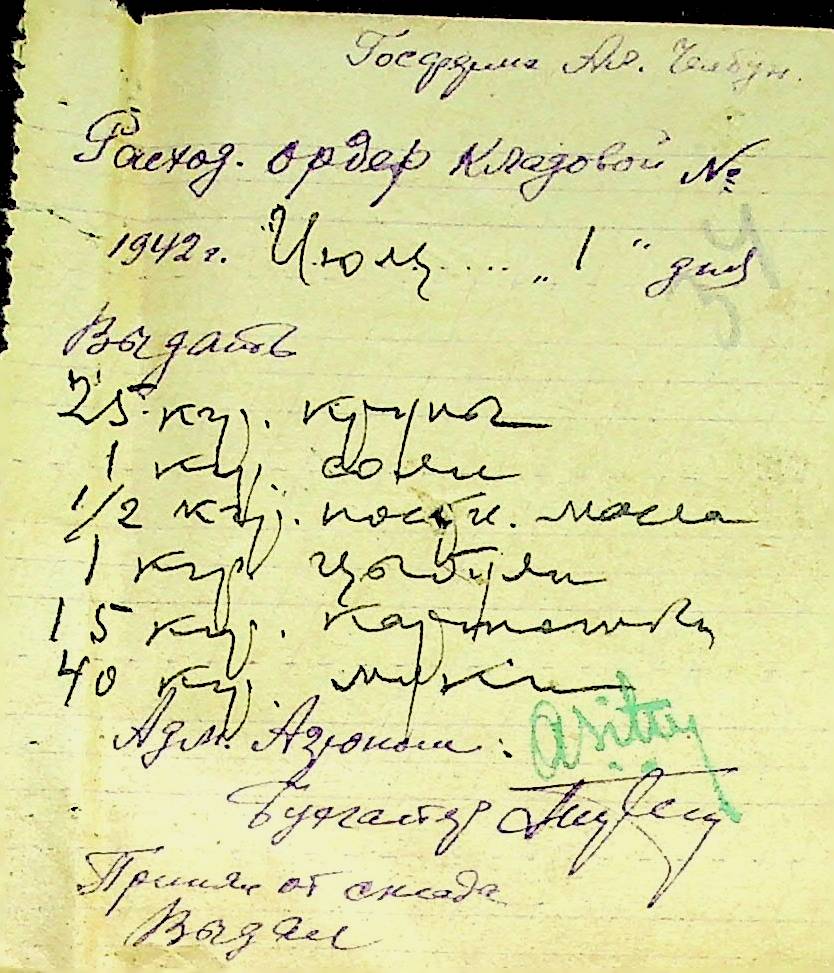 Госферма Ал. Челбун.
Расход. ордер кладовой №
1942 г. Июля .... „ 1 “ дня
54
Выдать
25 кгр. крупы
1 кгр. соли
1/2 кгр. постн. масла
1 кгр. цыбули
15 кгр. картошки
40 кгр. муки
Адм.
Бухгалтер
Принял от склада
Выдал